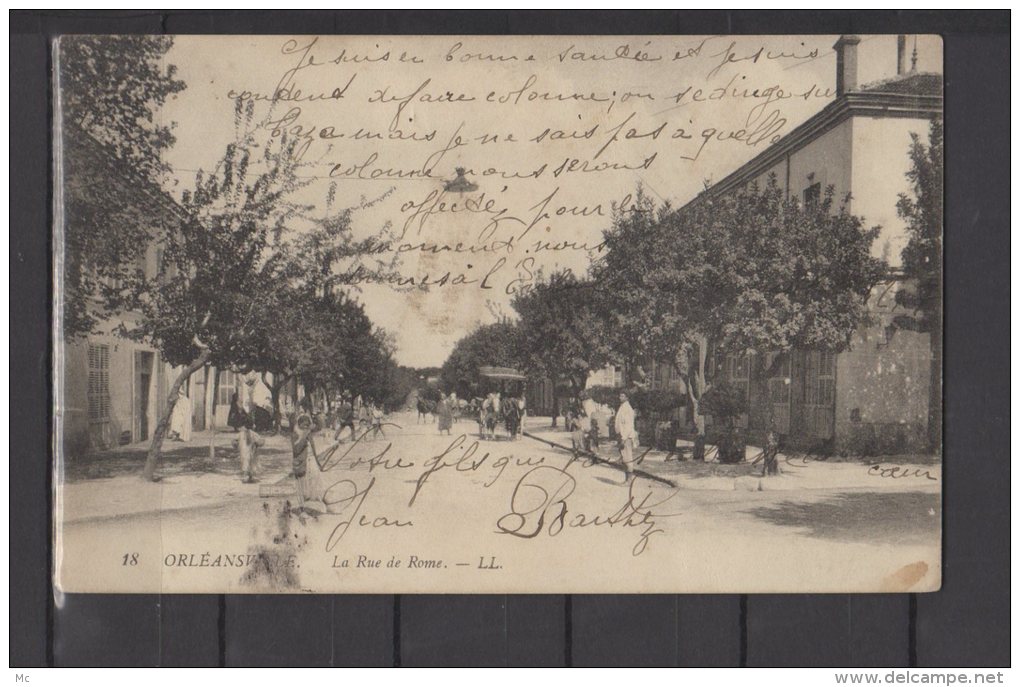 Je suis en bonne santée et Je suis
content de faire colonne ; on se dirige sur
Taza mais Je ne sais pas à quelle
colonne nous serons
affectés pour le
moment nous
sommes à l'
Votre fils qui cœur
Jean Barthez
18 ORLÉANSVILLE. La Rue de Rome. — LL.
Mc
www.delcampe.net